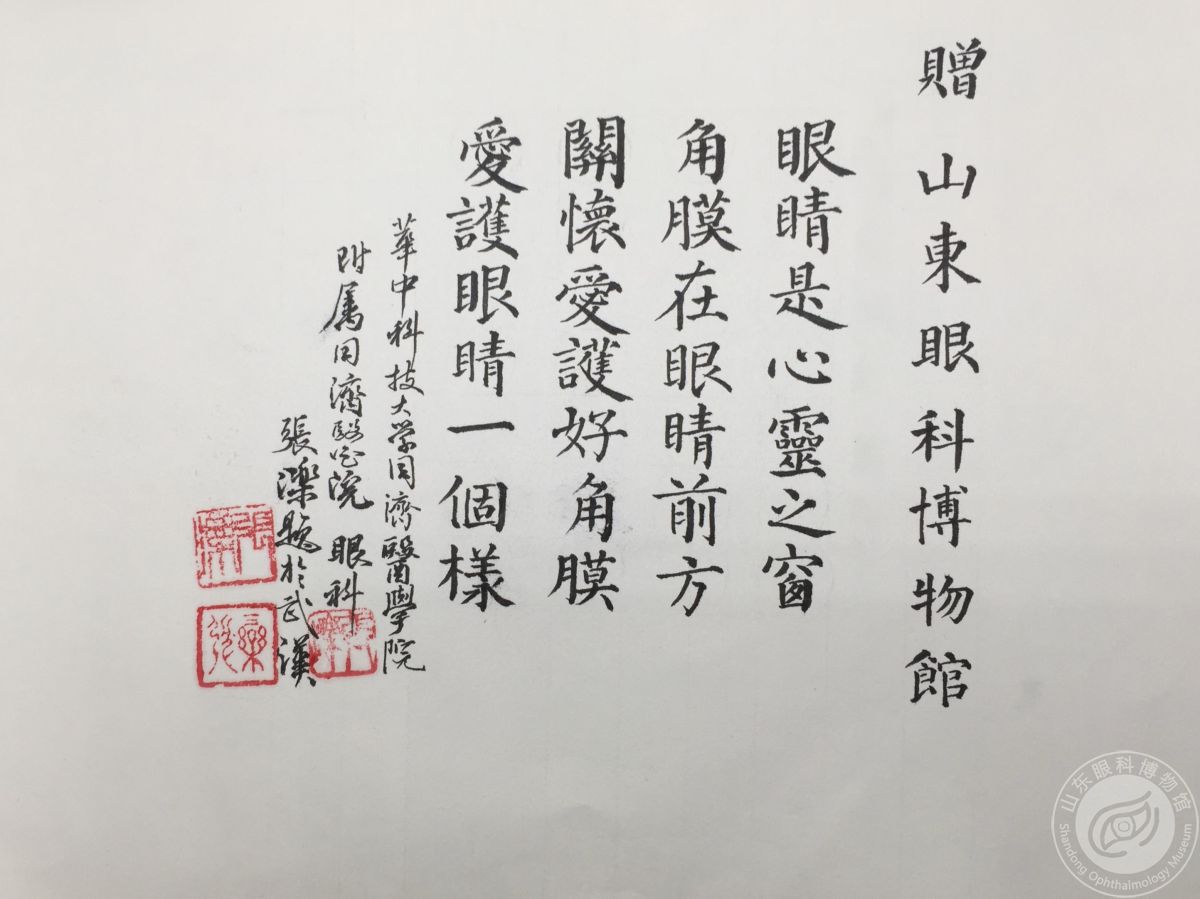 贈山東眼科博物館
眼睛是心靈之窗
角膜在眼睛前方
關懷愛護好角膜
愛護眼睛一個樣
華中科技大学同濟醫學院
附属同濟醫院眼科
張濼題於武漢
山东眼科博物馆
Shandong Ophthalmology Museum